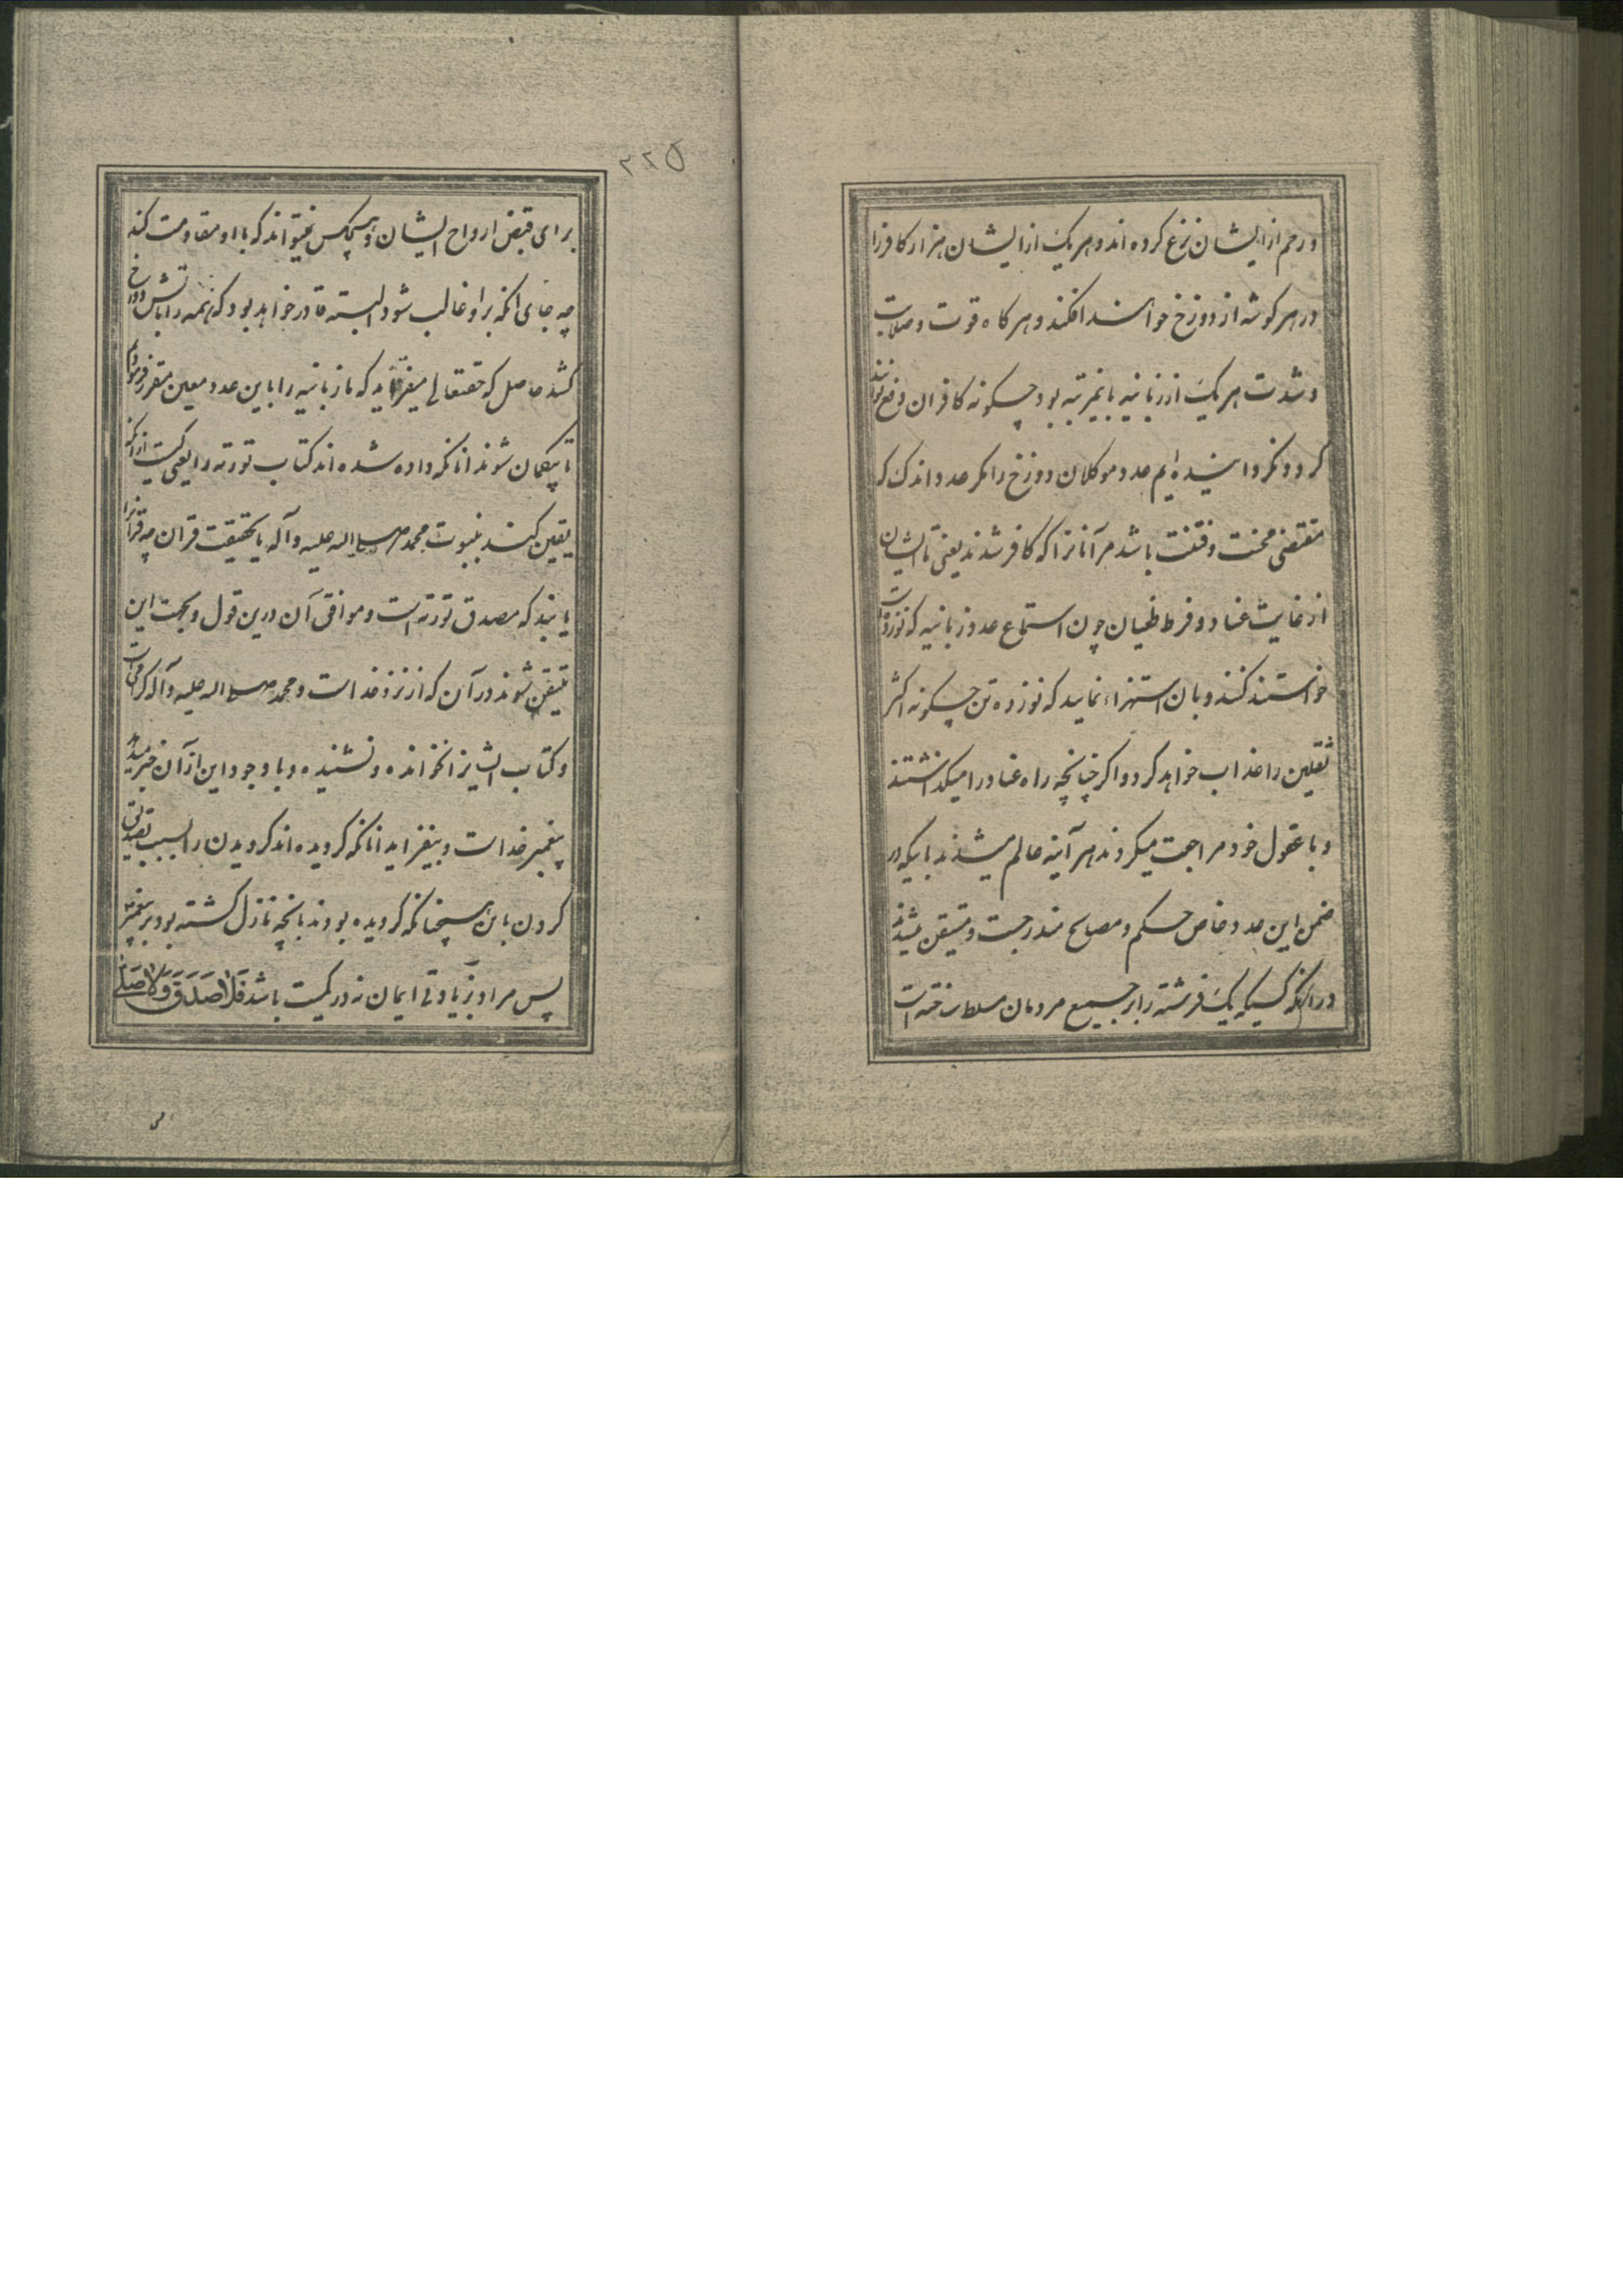 و رحم از ایشان نزع کرده اند و هر یک از ایشان هزار کافر را
در هر کوشه از دوزخ خواهند افکند و هر کاه قوت و صلابت
و شدت هر یک از زبانیه باینمرتبه بود چکونه کافران دفع توانند
کرد و نکردانیده ایم عدد موکلان دوزخ را مکر عدد اندک که
مقتضی محنت و فتنت باشد مر آنانرا که کافر شدند یعنی تا ایشان
از غایت عناد و فرط طغیان چون استماع عدد زبانیه که نوزده است
خواستند کنند و بان استهزاء نمایند که نوزده تن چکونه اکثر
ثقلین را عذاب خواهد کرد و اکر چنانچه راه عناد را میکذاشتند
و با عقول خود مراجعت میکردند هر آینه عالم میشدند باینکه در
ضمن این عدد خاص حکم و مصالح مندرجست و متیقن میشدند
در آنکه کسیکه یک فرشته را بر جمیع مردمان مسلط ساخته است
۲۲۵
برای قبض ارواح ایشان و هیچکس نمیتواند که با او مقاومت کند
چه جای انکه بر او غالب شود البته قادر خواهد بود که همه را باتش دوزخ
کشد حاصل که حقتعالی میفرماید که ما زبانیه را باین عدد معین مقرر فرمودیم
تا بیکمان شوند انانکه داده شده اند کتاب تورته را یعنی
یقین کنند بنبوت محمد صلی الله علیه و آله یا بحقیقت قران چه قرانرا
یابند که مصدق تورته است و موافق آن درین قول و بجهت این
متیقن شوند در آن که از نزد خداست و محمد صلی الله علیه و آله که امی است
و کتاب ایشانرا نخوانده و نشنیده و با وجود این از آن خبر میدهد
پیغمبر خداست و بیفزاید انانکه کرویده اند کرویدن را بسبب تصدیق
کردن باین همچنانکه کرویده بودند بانچه نازل کشته بود بر پیغمبر
پس مراد زیادتی ایمان نه در کمیت باشد فَلَا صَدَّقَ وَلَا صَلَّىٰ